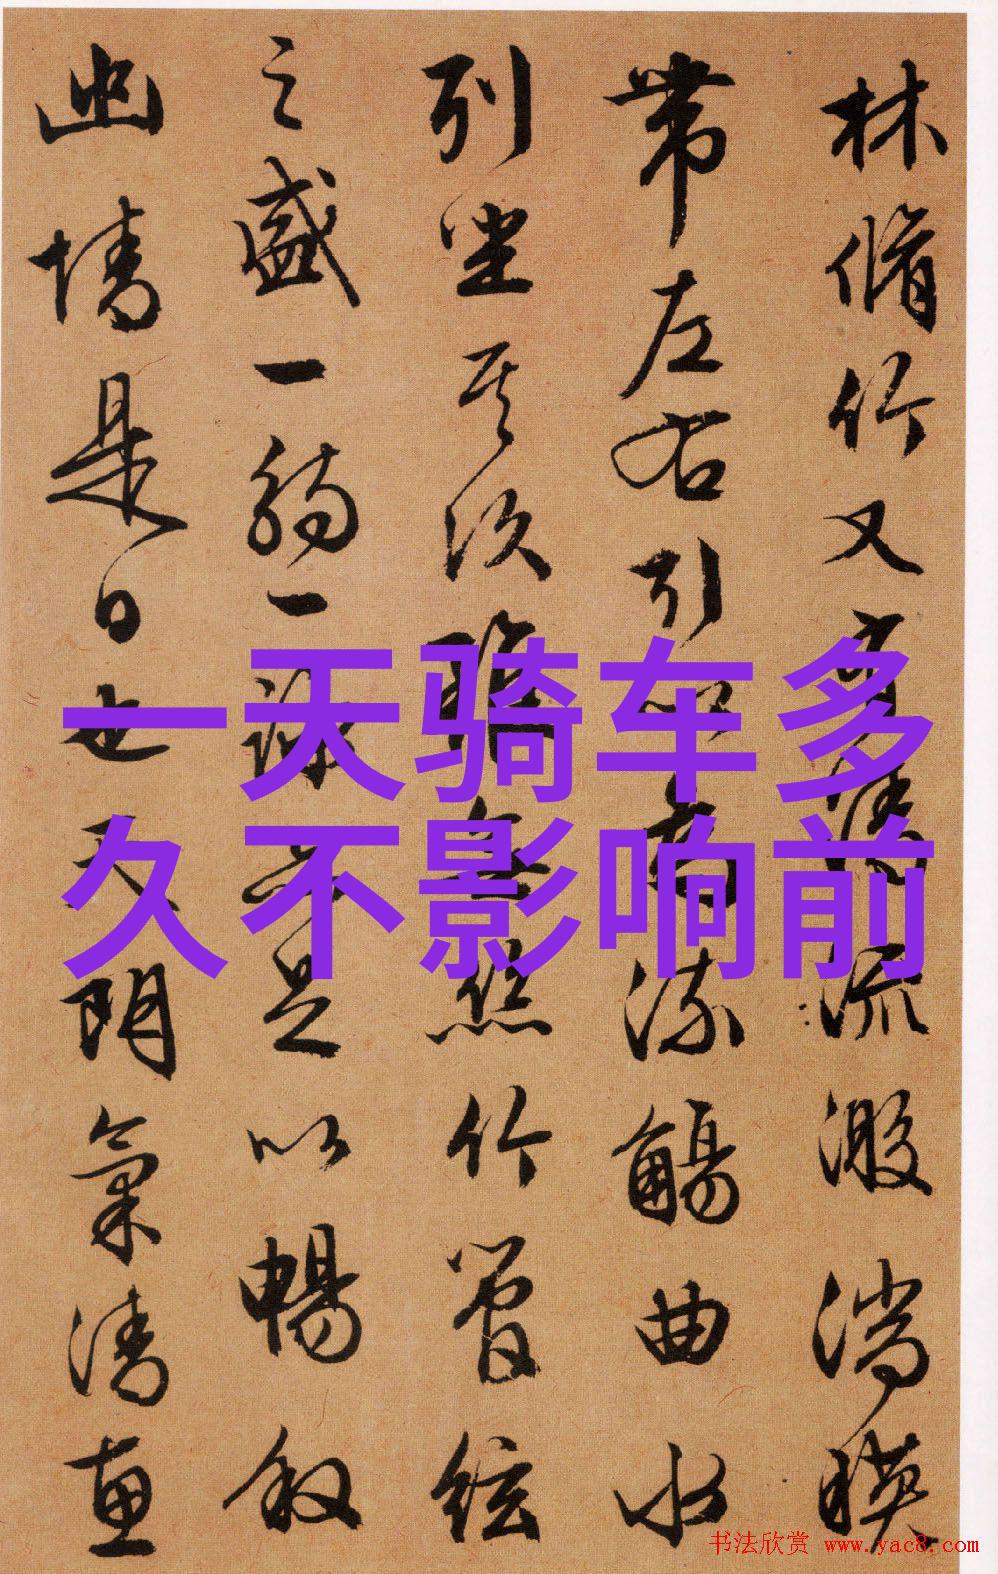 林脩竹又有清流激湍暎
帶左右引以為流觴曲水
列坐其次雖無絲竹管絃
之盛一觴一詠亦足以暢敘
幽情是日也天朗氣清惠
一天骑车多
久不影响前
书法欣赏 www.yac8.com